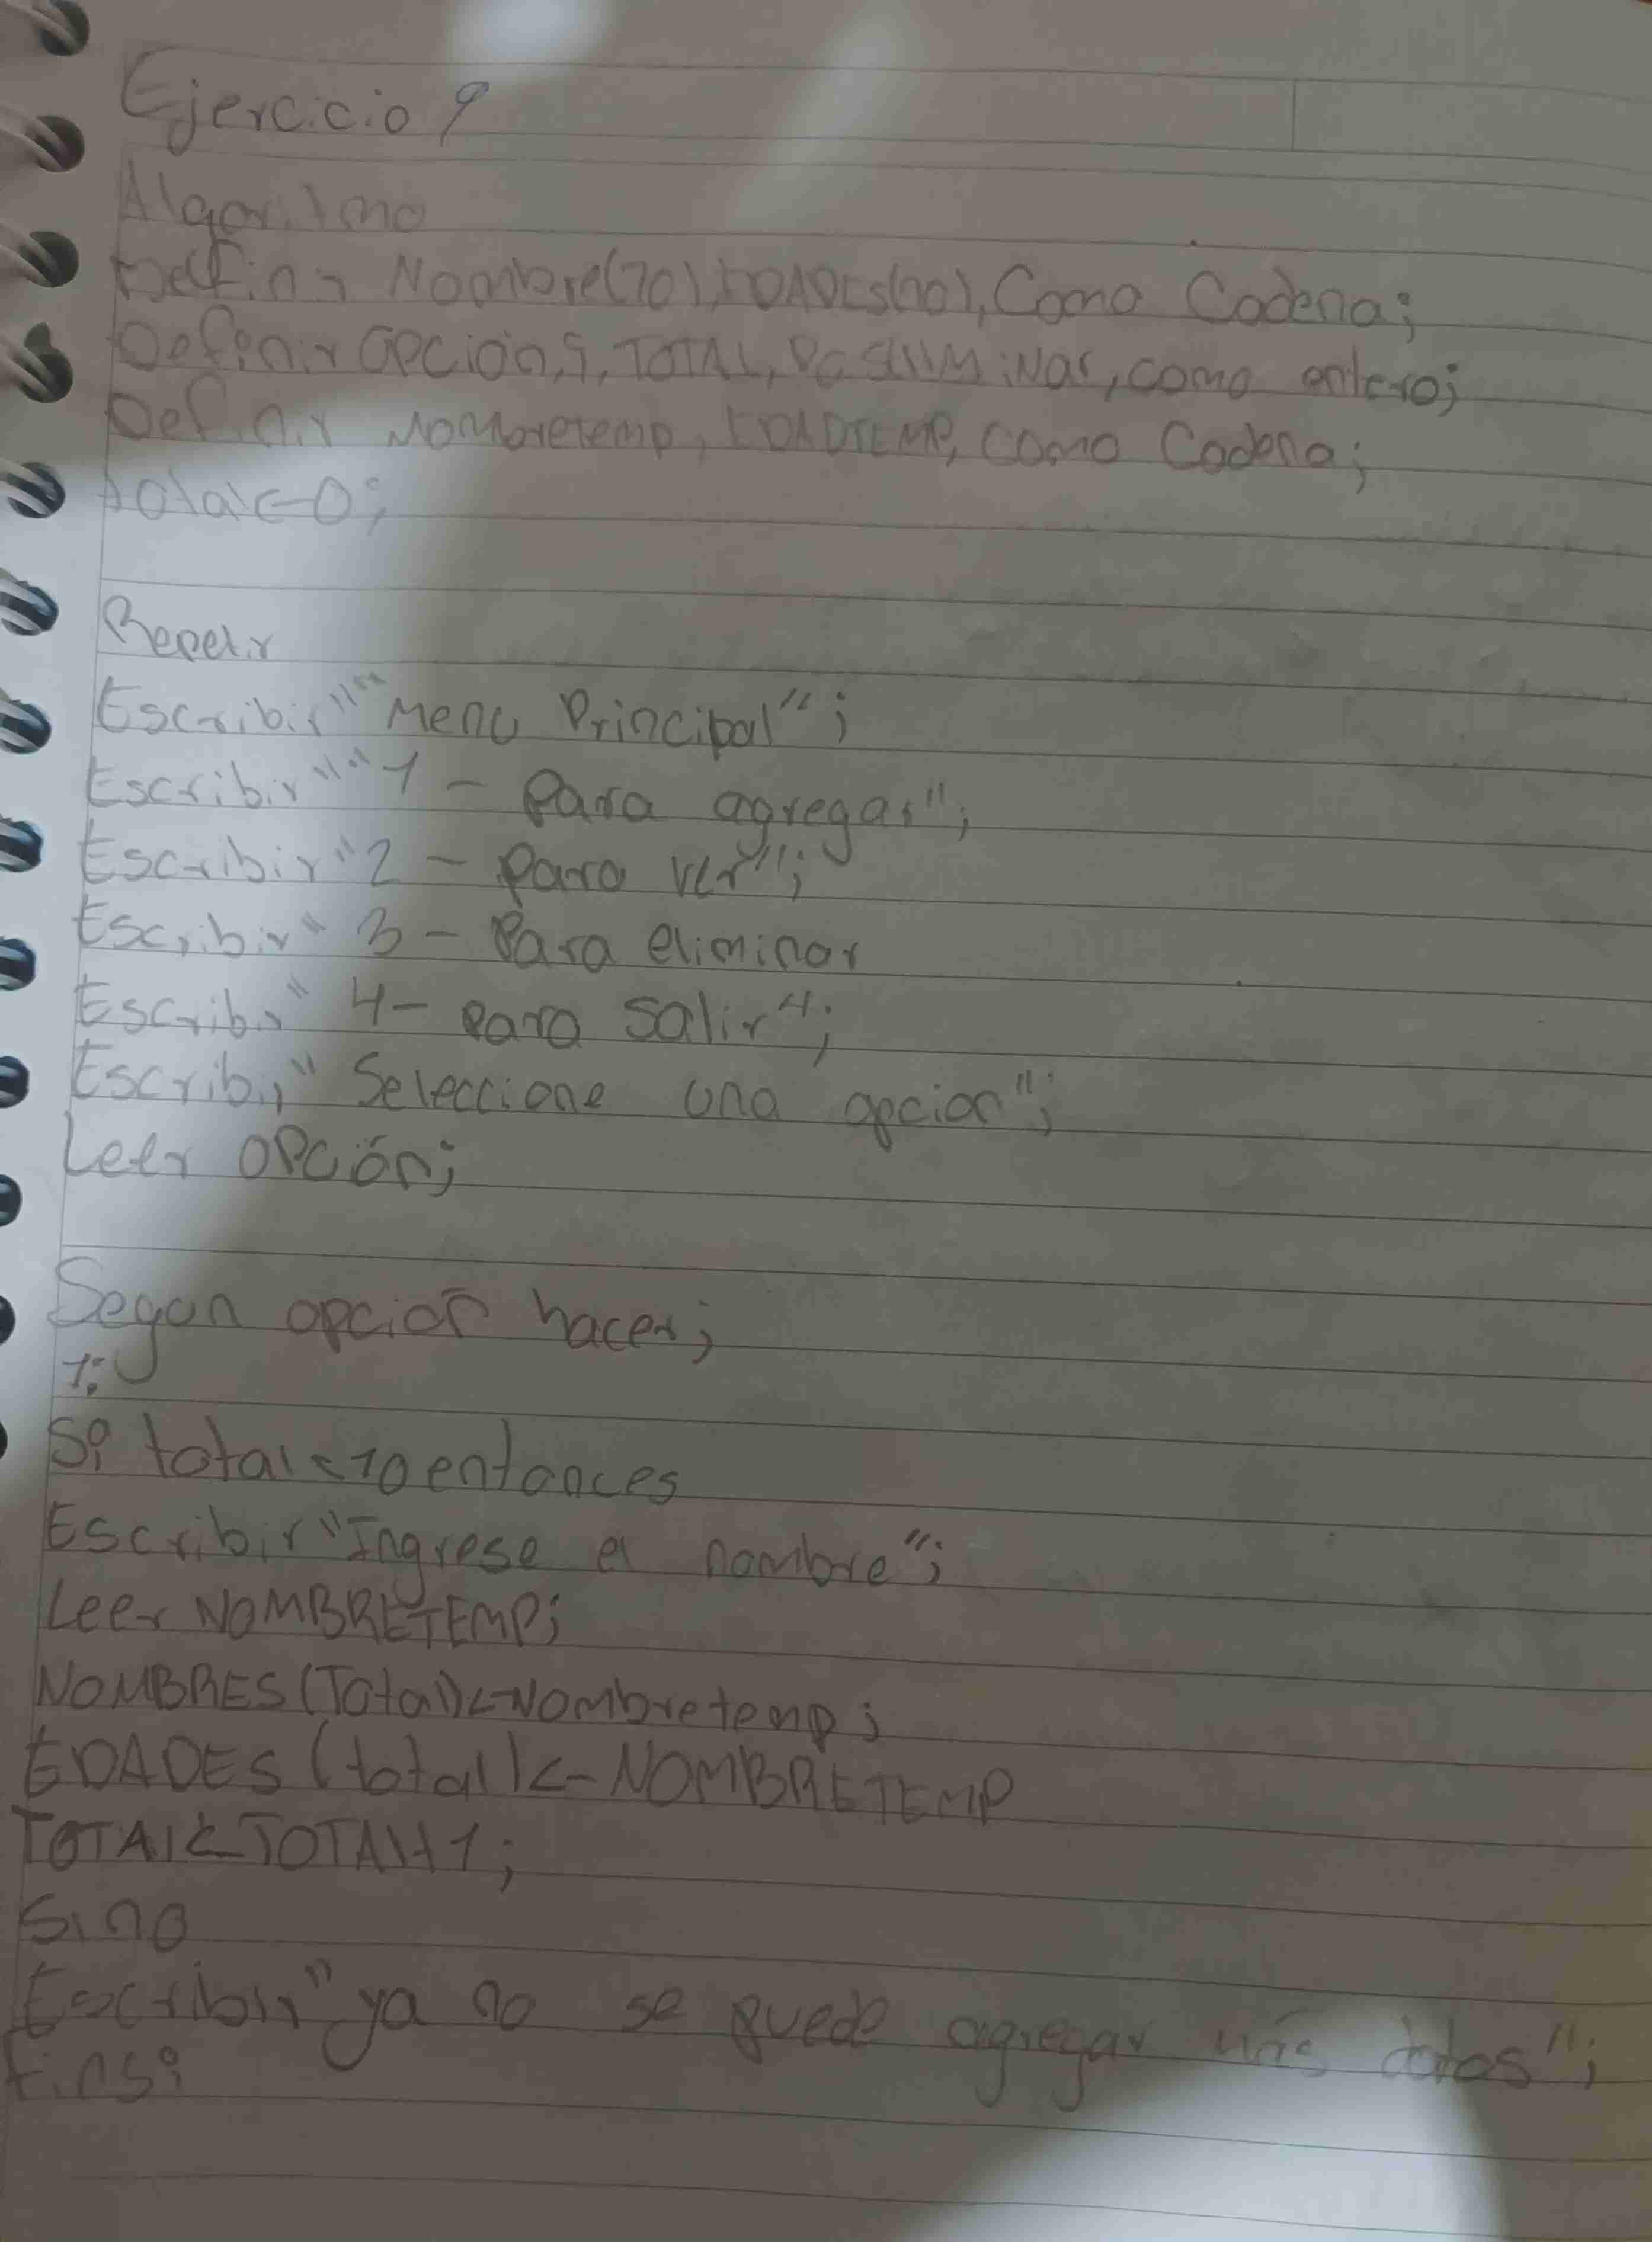 Ejercicio 9
Algoritmo
Definir Nombre(10), EDADES(10), Como Cadena;
Definir OPCión, i, TOTAL, como entero;
Definir Nombretemp, EDADTEMP, como Cadena;
total<-0;
Repetir
Escribir """"Menu Principal";
Escribir """"1 - Para agregar";
Escribir "2 - Para ver";
Escribir "3 - Para eliminar
Escribir "4- para salir";
Escribir "Seleccione una opcion";
Leer OPCión;
Segun opcion hacer;
1:
Si total <10 entonces
Escribir "Ingrese el nombre";
Leer NOMBRETEMP;
NOMBRES(Total)<-Nombretemp;
EDADES (total)<-NOMBRETEMP
TOTAl<-TOTAl+1;
Sino
Escribir "ya no se puede agregar más datos";
Finsi